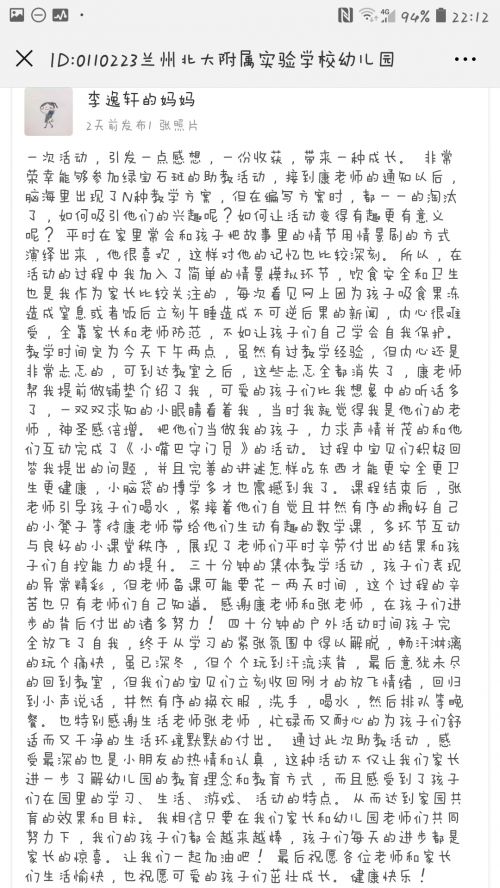 94% 22:12
ID:0110223兰州北大附属实验学校幼儿园
李逸轩的妈妈
2天前发布1 张照片
一次活动，引发一点感想，一份收获，带来一种成长。 非常
荣幸能够参加绿宝石班的助教活动，接到康老师的通知以后，
脑海里出现了N种教学方案，但在编写方案时，都一一的淘汰
了，如何吸引他们的兴趣呢？如何让活动变得有趣更有意义
呢？ 平时在家里常会和孩子把故事里的情节用情景剧的方式
演绎出来，他很喜欢，这样对他的记忆也比较深刻。所以，在
活动的过程中我加入了简单的情景模拟环节，饮食安全和卫生
也是我作为家长比较关注的，每次看见网上因为孩子吸食果冻
造成窒息或者饭后立刻午睡造成不可逆后果的新闻，内心很难
受，全靠家长和老师防范，不如让孩子们自己学会自我保护。
教学时间定为今天下午两点，虽然有过教学经验，但内心还是
非常忐忑的，可到达教室之后，这些忐忑全都消失了，康老师
帮我提前做铺垫介绍了我，可爱的孩子们比我想象中的听话多
了，一双双求知的小眼睛看着我，当时我就觉得我是他们的老
师，神圣感倍增。 把他们当做我的孩子，力求声情并茂的和他
们互动完成了《小嘴巴守门员》的活动。 过程中宝贝们积极回
答我提出的问题，并且完善的讲述怎样吃东西才能更安全更卫
生更健康，小脑袋的博学多才也震撼到我了。 课程结束后，张
老师引导孩子们喝水，紧接着他们自觉且井然有序的搬好自己
的小凳子等待康老师带给他们生动有趣的数学课，多环节互动
与良好的小课堂秩序，展现了老师们平时辛劳付出的结果和孩
子们自控能力的提升。 三十分钟的集体教学活动，孩子们表现
的异常精彩，但老师备课可能要花一两天时间，这个过程的辛
苦也只有老师们自己知道。 感谢康老师和张老师，在孩子们进
步的背后付出的诸多努力！ 四十分钟的户外活动时间孩子完
全放飞了自我，终于从学习的紧张氛围中得以解脱，畅汗淋漓
的玩个痛快，虽已深冬，但个个玩到汗流浃背，最后意犹未尽
的回到教室，但我们的宝贝们立刻收回刚才的放飞情绪，回归
到小声说话，井然有序的换衣服，洗手，喝水，然后排队等晚
餐。 也特别感谢生活老师张老师，忙碌而又耐心的为孩子们舒
适而又干净的生活环境默默的付出。 通过此次助教活动，感
受最深的也是小朋友的热情和认真，这种活动不仅让我们家长
进一步了解幼儿园的教育理念和教育方式，而且感受到了孩子
们在园里的学习、生活、游戏、活动的特点。 从而达到家园共
育的效果和目标。 我相信只要在我们家长和幼儿园老师们共同
努力下，我们的孩子们都会越来越棒，孩子们每天的进步都是
家长的惊喜。 让我们一起加油吧！ 最后祝愿各位老师和家长
们生活愉快，也祝愿可爱的孩子们茁壮成长。 健康快乐！